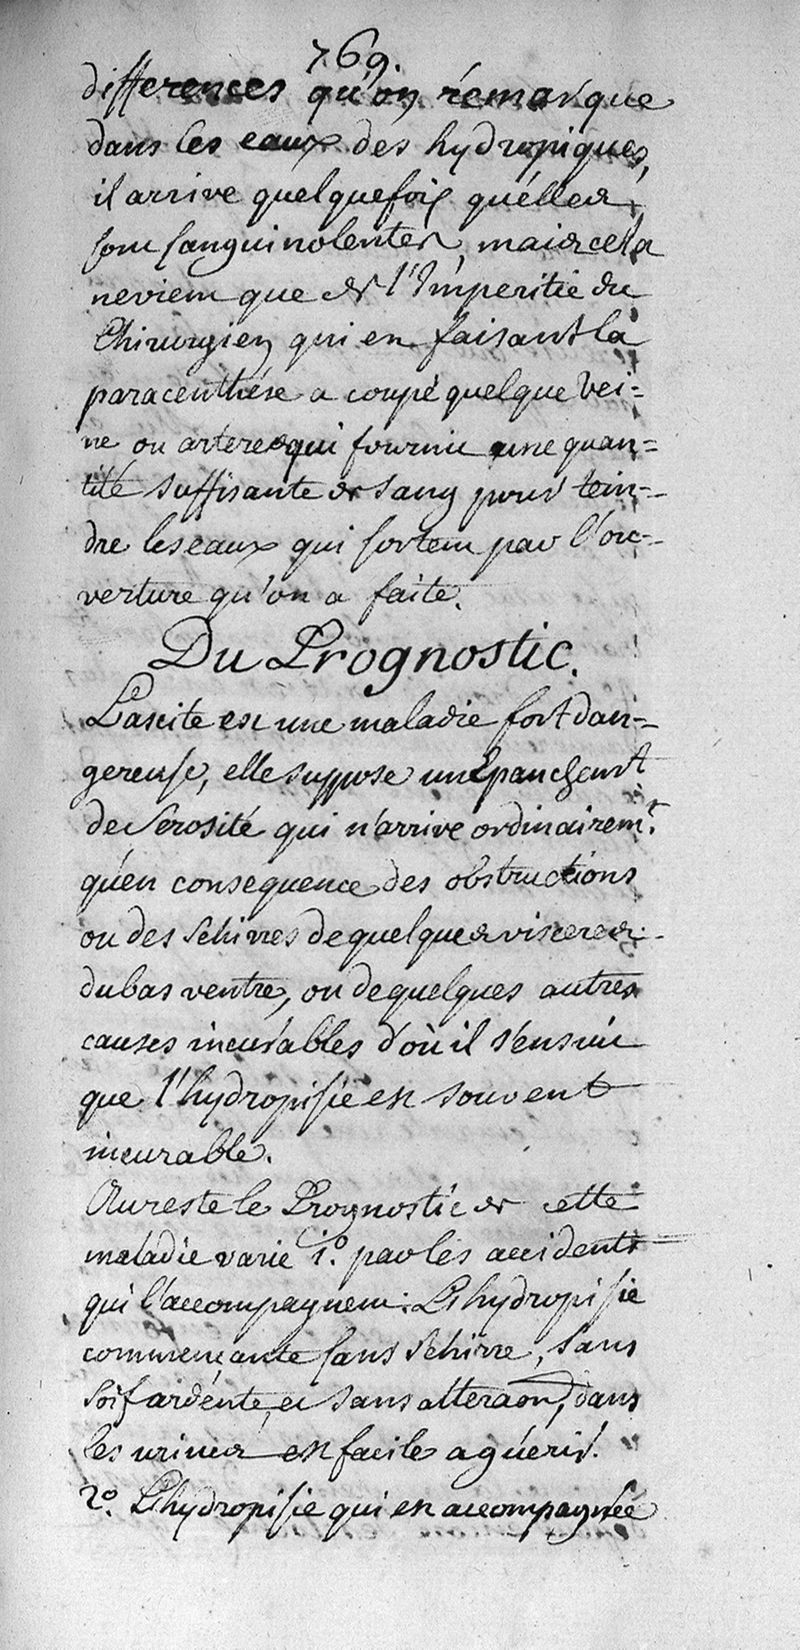 769.
differences qu'on remarque
dans les eaux des hydropiques,
il arrive quelquefois qu'elles
sont sanguinolentes, mais cela
ne vient que de l'Imperitie du
Chirurgien qui en faisant la
paracenthése a coupé quelque vei=
ne ou arteres qui fournit une quan=
tité suffisante de sang pour tein=
dre les eaux qui sortent par l'ou=
verture qu'on a faite.
Du Prognostic.
L'ascite est une maladie fort dan=
gereuse, elle suppose un Epanchemt
de serosité qui n'arrive ordinairemt.
qu'en consequence des obstructions
ou des schirres de quelques visceres
du bas ventre, ou de quelques autres
causes incurables d'où il s'ensuit
que l'hydropisie est souvent
incurable.
Au reste le Prognostic de cette
maladie varie 1º. par les accidents
qui l'accompagnent: L'hydropisie
commençante sans schirre, sans
soif ardente, et sans alteraon, dans
les urines est facile a guérir.
2º. L'hydropisie qui est accompagnée